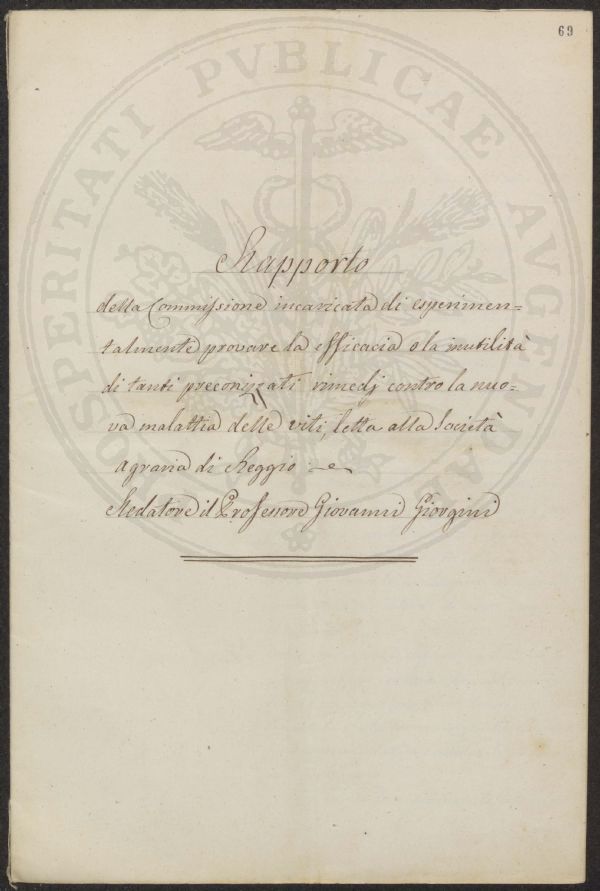 69
PROSPERITATI PVBLICAE AVGENDAE
Rapporto
della Commissione incaricata di esperimen=
talmente provare la efficacia o la inutilità
di tanti preconizzati rimedj contro la nuo=
va malattia delle viti, letta alla Società
Agraria di Reggio
Redatore il Professore Giovanni Giorgini